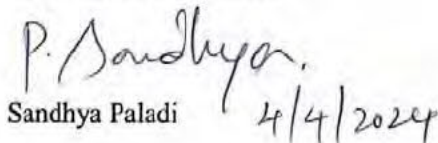 P. Sandhya.
Sandhya Paladi 4/4/2024